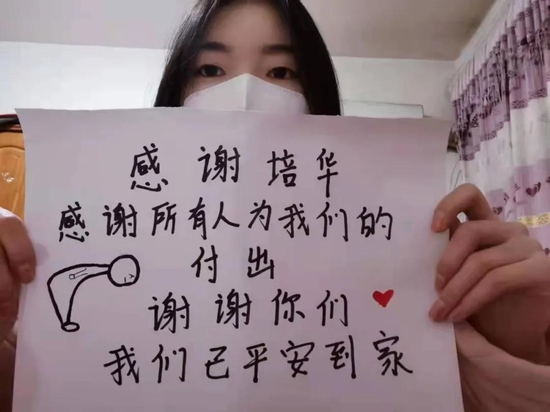 感谢培华
感谢所有人为我们的
付出
谢谢你们
我们已平安到家